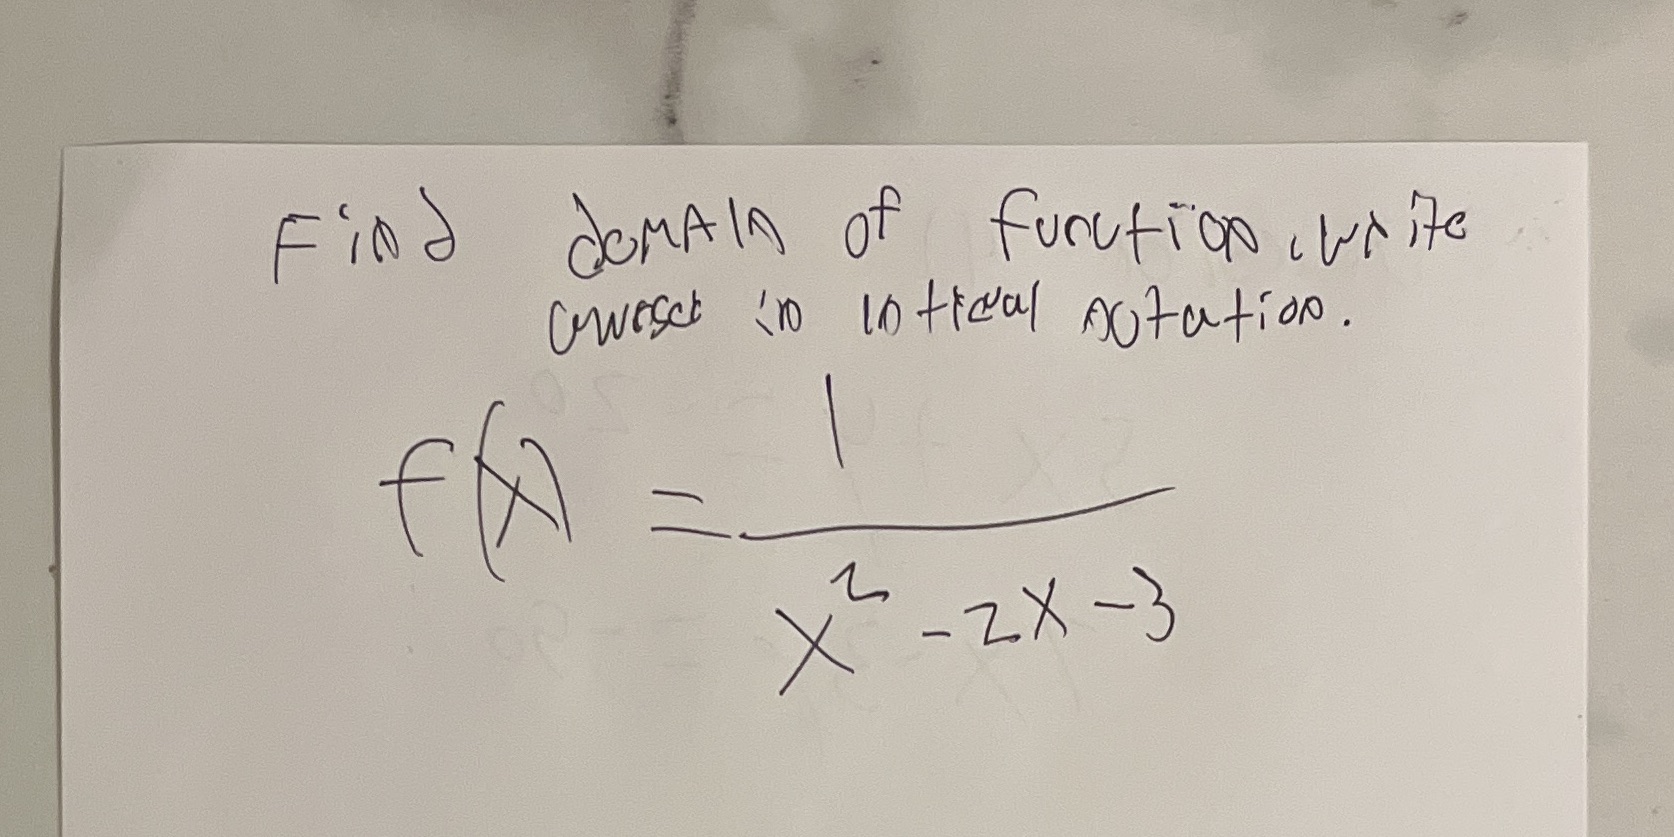 Find domain of function, write
answer in interval notation.
f(x) = 1 / x² - 2x - 3